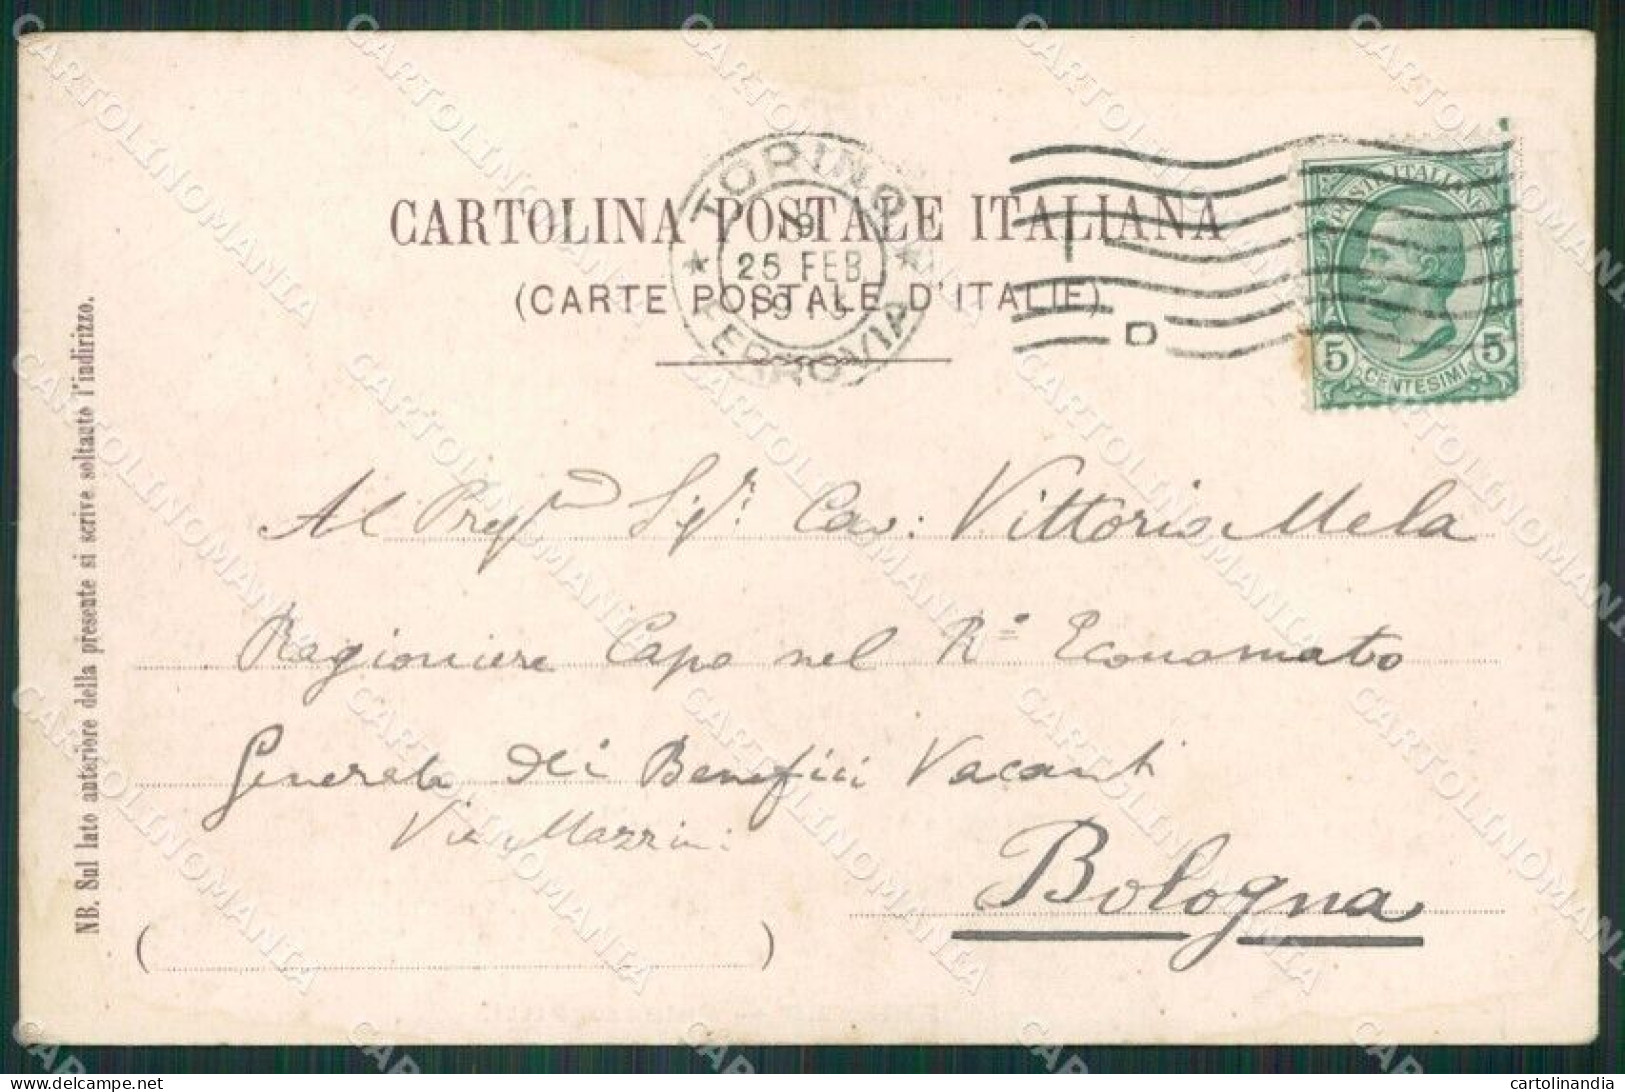 CARTOLINA POSTALE ITALIANA
(CARTE POSTALE D'ITALIE)
TORINO
8
25 FEB
FERROVIA
POSTE ITALIANE
5 5
CENTESIMI
Al Sigr. Cav: Vittorio Mela
Ragioniere Capo nel Ro Economato
Generale dei Benefici Vacanti
Via Mazzini
Bologna
NB. Sul lato anteriore della presente si scrive soltanto l'indirizzo.
CARTOLINOMANIA
cartolinandia